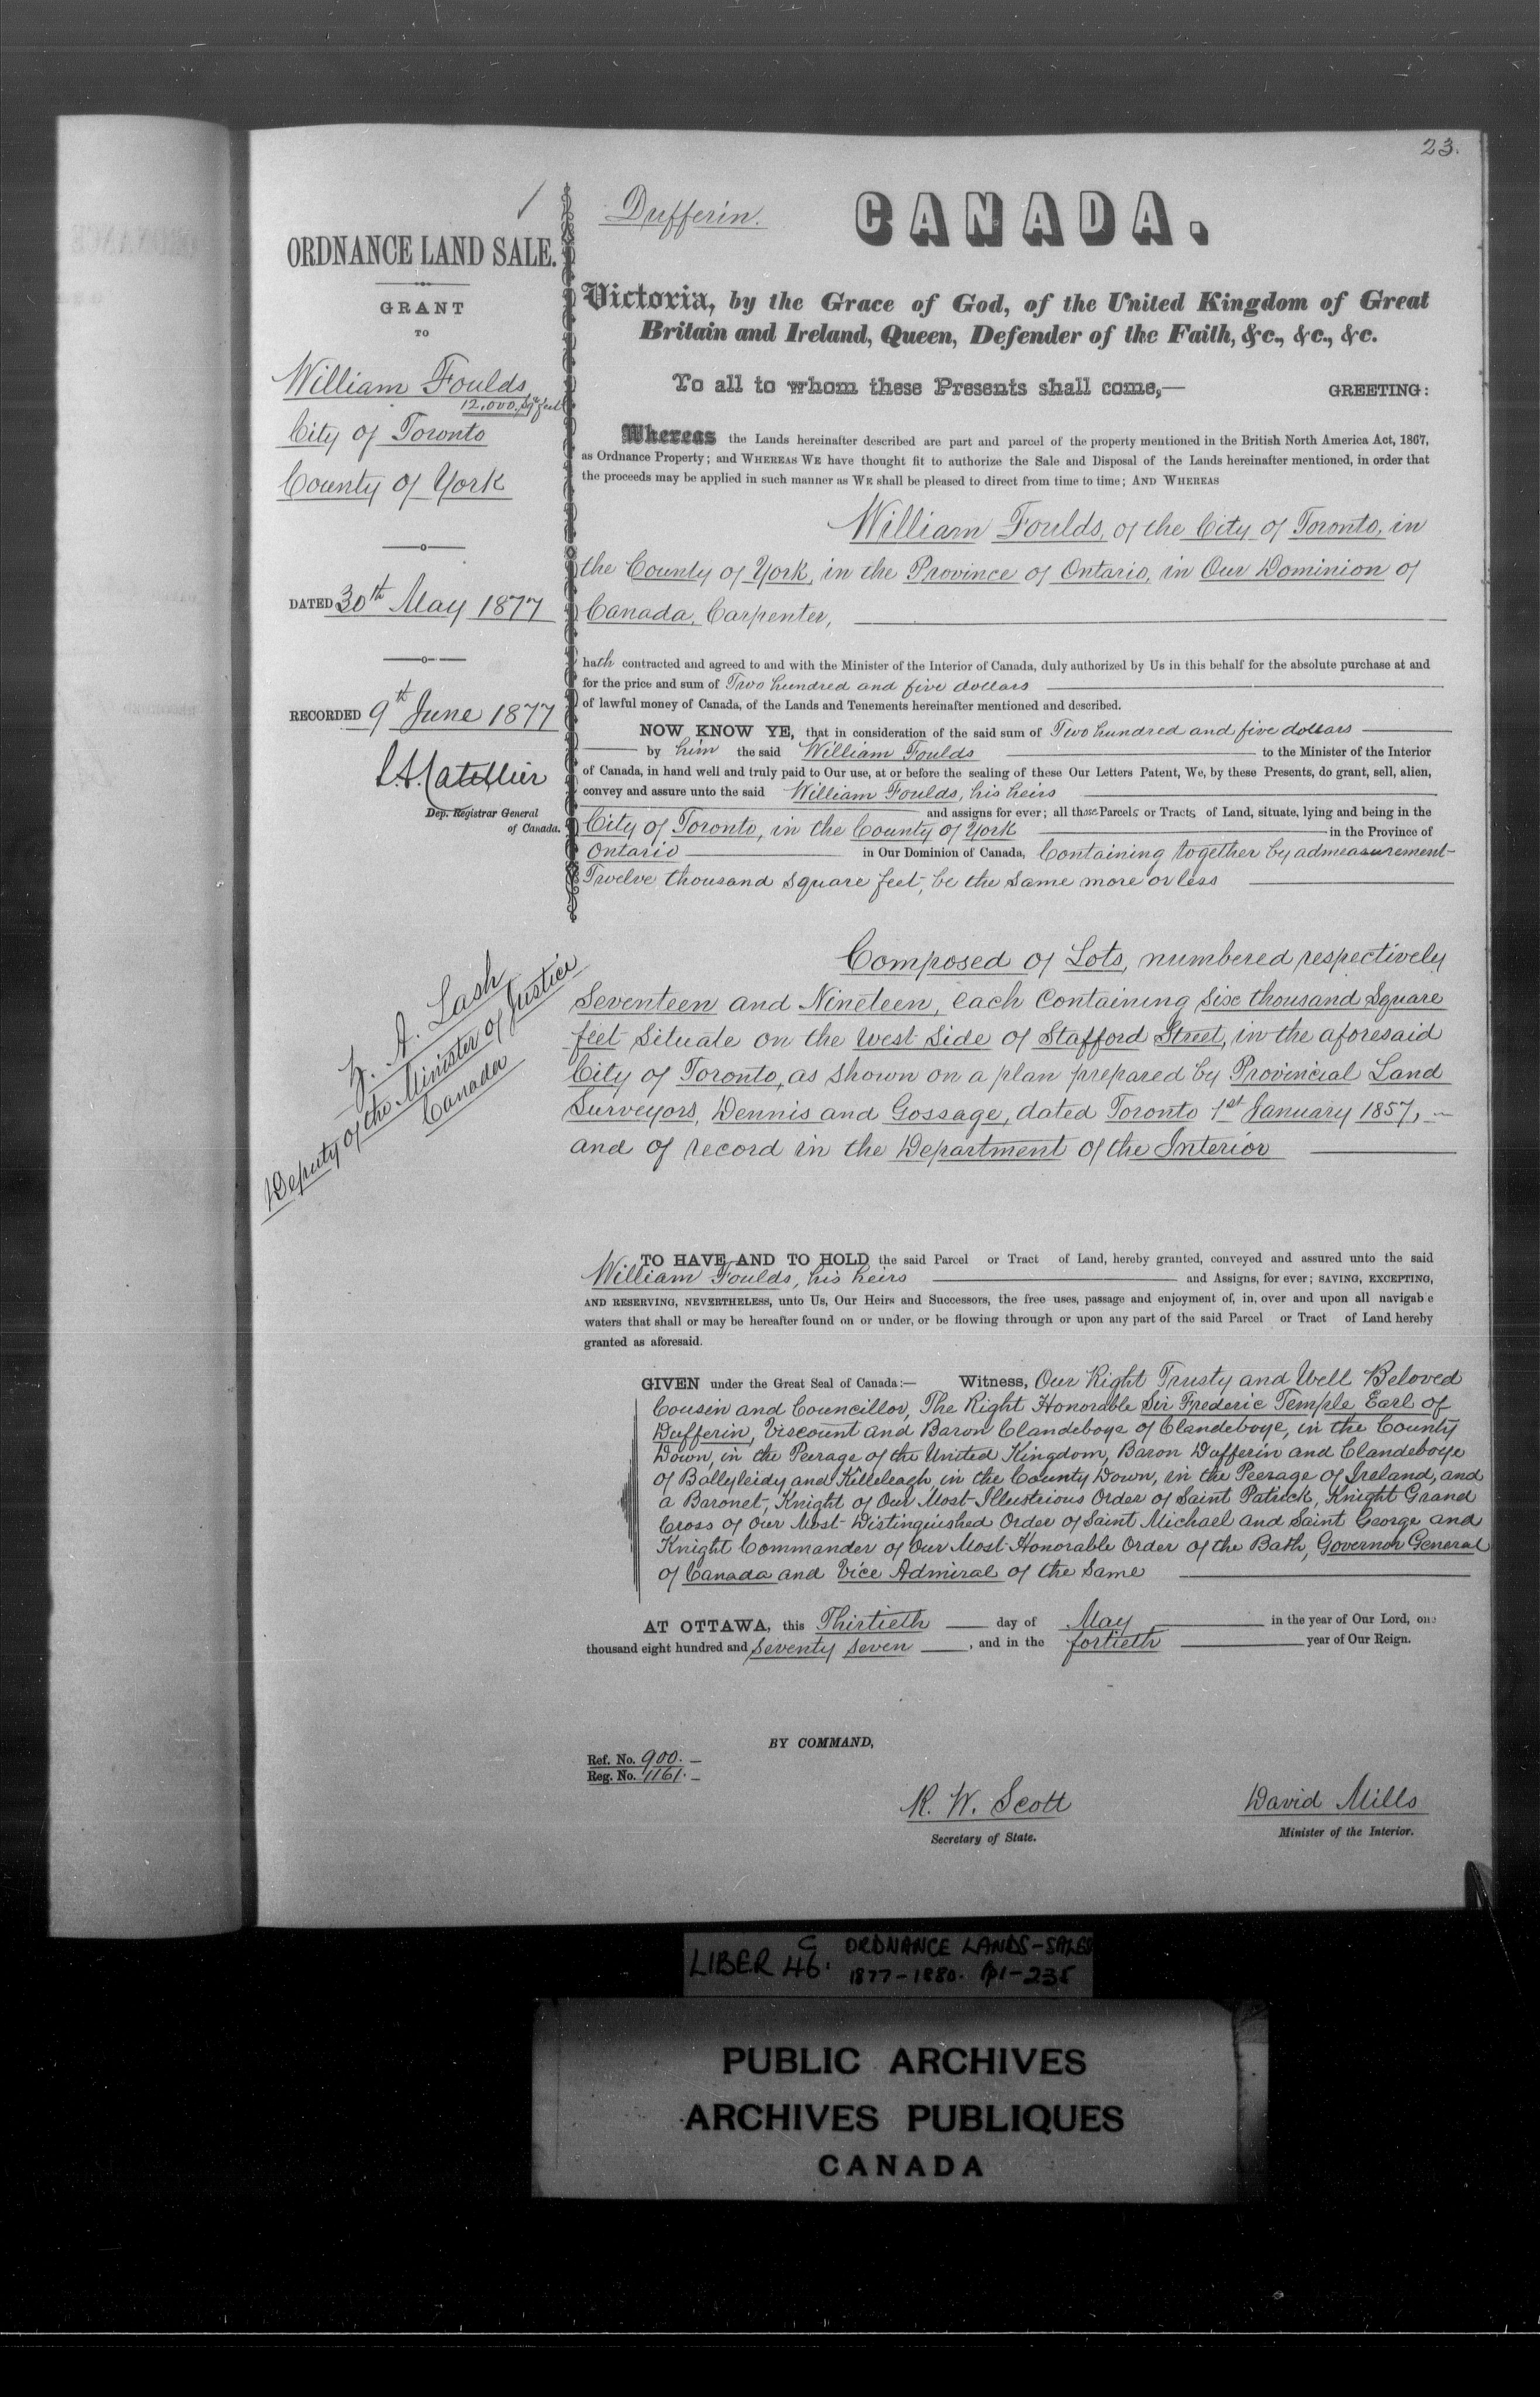 23.
ORDNANCE LAND SALE.
GRANT
TO
William Foulds
12,000 Sqe feet
City of Toronto
County of York
DATED 30th May 1877
RECORDED 9th June 1877
L.A. Catellier
Dep. Registrar General
of Canada.
Z. A. Lash
Deputy of the Minister of Justice
Canada
Dufferin.
CANADA.
Victoria, by the Grace of God, of the United Kingdom of Great
Britain and Ireland, Queen, Defender of the Faith, &c., &c., &c.
To all to whom these Presents shall come,— GREETING:
Whereas the Lands hereinafter described are part and parcel of the property mentioned in the British North America Act, 1867,
as Ordnance Property; and WHEREAS WE have thought fit to authorize the Sale and Disposal of the Lands hereinafter mentioned, in order that
the proceeds may be applied in such manner as WE shall be pleased to direct from time to time; AND WHEREAS
William Foulds, of the City of Toronto, in
the County of York, in the Province of Ontario, in Our Dominion of
Canada, Carpenter,
hath contracted and agreed to and with the Minister of the Interior of Canada, duly authorized by Us in this behalf for the absolute purchase at and
for the price and sum of Two hundred and five dollars
of lawful money of Canada, of the Lands and Tenements hereinafter mentioned and described.
NOW KNOW YE, that in consideration of the said sum of Two hundred and five dollars
by him the said William Foulds to the Minister of the Interior
of Canada, in hand well and truly paid to Our use, at or before the sealing of these Our Letters Patent, We, by these Presents, do grant, sell, alien,
convey and assure unto the said William Foulds, his heirs
and assigns for ever; all those Parcels or Tracts of Land, situate, lying and being in the
City of Toronto, in the County of York in the Province of
Ontario in Our Dominion of Canada, Containing together by admeasurement
Twelve thousand square feet, be the same more or less
Composed of Lots, numbered respectively
Seventeen and Nineteen, each containing six thousand square
feet situate on the west side of Stafford Street, in the aforesaid
City of Toronto, as shown on a plan prepared by Provincial Land
Surveyors, Dennis and Gossage, dated Toronto 1st January 1857,
and of record in the Department of the Interior
TO HAVE AND TO HOLD the said Parcel or Tract of Land, hereby granted, conveyed and assured unto the said
William Foulds, his heirs and Assigns, for ever; SAVING, EXCEPTING,
AND RESERVING, NEVERTHELESS, unto Us, Our Heirs and Successors, the free uses, passage and enjoyment of, in, over and upon all navigab e
waters that shall or may be hereafter found on or under, or be flowing through or upon any part of the said Parcel or Tract of Land hereby
granted as aforesaid.
GIVEN under the Great Seal of Canada:— Witness, Our Right Trusty and Well Beloved
Cousin and Councillor, The Right Honorable Sir Frederic Temple Earl of
Dufferin, Viscount and Baron Clandeboye of Clandeboye, in the County
Down, in the Peerage of the United Kingdom, Baron Dufferin and Clandeboye
of Ballyleidy and Killeleagh, in the County Down, in the Peerage of Ireland, and
a Baronet, Knight of Our Most Illustrious Order of Saint Patrick, Knight Grand
Cross of Our Most Distinguished Order of Saint Michael and Saint George and
Knight Commander of Our Most Honorable Order of the Bath, Governor General
of Canada and Vice Admiral of the same
AT OTTAWA, this Thirtieth day of May in the year of Our Lord, one
thousand eight hundred and seventy seven, and in the fortieth year of Our Reign.
BY COMMAND,
Ref. No. 900.—
Reg. No. 1161.—
R. W. Scott
Secretary of State.
David Mills
Minister of the Interior.
LIBER C 46. ORDNANCE LANDS-SALES
1877-1880. p1-235
PUBLIC ARCHIVES
ARCHIVES PUBLIQUES
CANADA